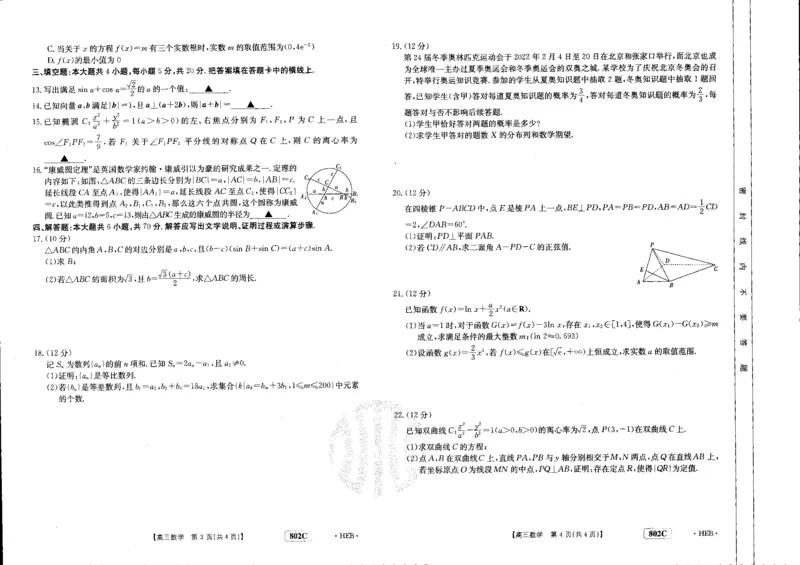 C. 当关于 x 的方程 f(x)=m 有三个实数根时,实数 m 的取值范围为(0,4e⁻²)
D. f(x)的最小值为 0
三、填空题:本大题共 4 小题,每小题 5 分,共 20 分.把答案填在答题卡中的横线上.
13. 写出满足 sin α+cos α=√2/2 的 α 的一个值: ▲ .
14. 已知向量 a,b 满足|b|=1,且 a⊥(a+2b),则|a+b|= ▲ .
15. 已知椭圆 C: x²/a²+y²/b²=1(a>b>0)的左、右焦点分别为 F₁,F₂,P 为 C 上一点,且
cos∠F₁PF₂=7/9,若 F₁ 关于∠F₁PF₂ 平分线的对称点 Q 在 C 上,则 C 的离心率为
▲ .
16. “康威圆定理”是英国数学家约翰·康威引以为豪的研究成果之一.定理的
内容如下:如图,△ABC 的三条边长分别为|BC|=a,|AC|=b,|AB|=c.
延长线段 CA 至点 A₁,使得|AA₁|=a,延长线段 AC 至点 C₂,使得|CC₂|
=c,以此类推得到点 A₂,B₁,C₁,B₂,那么这六个点共圆,这个圆称为康威
圆.已知 a=12,b=5,c=13,则由△ABC 生成的康威圆的半径为 ▲ .
四、解答题:本大题共 6 小题,共 70 分.解答应写出文字说明、证明过程或演算步骤.
17. (10 分)
△ABC 的内角 A,B,C 的对边分别是 a,b,c,且(b-c)(sin B+sin C)=(a+c)sin A.
(1)求 B;
(2)若△ABC 的面积为√3,且 b=√3(a+c)/2,求△ABC 的周长.
18. (12 分)
记 Sₙ 为数列{aₙ}的前 n 项和.已知 Sₙ=2aₙ-a₁,且 a₁≠0.
(1)证明:{aₙ}是等比数列.
(2)若{bₙ}是等差数列,且 b₁=a₁,b₂+b₅=18a₁,求集合{k|aₖ=bₘ+3b₁,1≤m≤200}中元素
的个数.
【高三数学 第 3 页(共 4 页)】 802C ·HEB·
19. (12 分)
第 24 届冬季奥林匹克运动会于 2022 年 2 月 4 日至 20 日在北京和张家口举行,而北京也成
为全球唯一主办过夏季奥运会和冬季奥运会的双奥之城.某学校为了庆祝北京冬奥会的召
开,特举行奥运知识竞赛.参加的学生从夏奥知识题中抽取 2 题,冬奥知识题中抽取 1 题回
答,已知学生(含甲)答对每道夏奥知识题的概率为3/4,答对每道冬奥知识题的概率为2/3,每
题答对与否不影响后续答题.
(1)学生甲恰好答对两题的概率是多少?
(2)求学生甲答对的题数 X 的分布列和数学期望.
20. (12 分)
在四棱锥 P-ABCD 中,点 E 是棱 PA 上一点,BE⊥PD,PA=PB=PD,AB=AD=1/2CD
=2,∠DAB=60°.
(1)证明:PD⊥平面 PAB.
(2)若 CD∥AB,求二面角 A-PD-C 的正弦值.
P
D
E
C
A
B
21. (12 分)
已知函数 f(x)=ln x+a/2x²(a∈R).
(1)当 a=1 时,对于函数 G(x)=f(x)-3ln x,存在 x₁,x₂∈[1,4],使得 G(x₁)-G(x₂)≥m
成立,求满足条件的最大整数 m;(ln 2≈0.693)
(2)设函数 g(x)=2/3x³,若 f(x)≤g(x)在[√e,+∞)上恒成立,求实数 a 的取值范围.
22. (12 分)
已知双曲线 C: x²/a²-y²/b²=1(a>0,b>0)的离心率为√2,点 P(3,-1)在双曲线 C 上.
(1)求双曲线 C 的方程;
(2)点 A,B 在双曲线 C 上,直线 PA,PB 与 y 轴分别相交于 M,N 两点,点 Q 在直线 AB 上,
若坐标原点 O 为线段 MN 的中点,PQ⊥AB,证明:存在定点 R,使得|QR|为定值.
【高三数学 第 4 页(共 4 页)】 802C ·HEB·
密
封
线
内
不
要
答
题